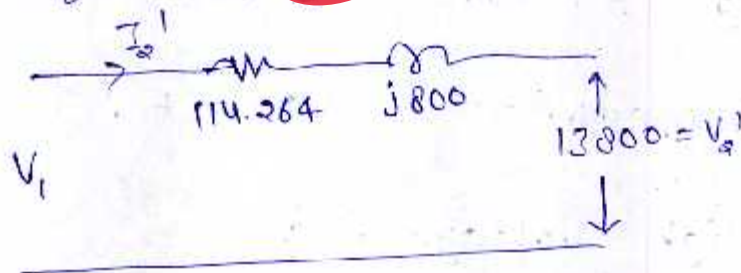 I₂'
114.264 j800
13800 = V₂'
V₁